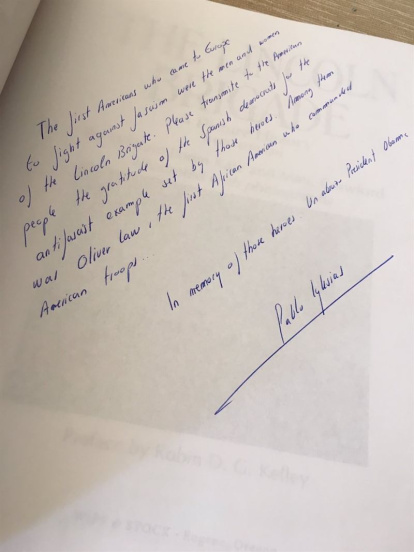 The first Americans who came to Europe
to fight against fascism were the men and women
of the Lincoln Brigate. Please transmite to the American
people the gratitude of the Spanish democrats for the
antifascist example set by those heroes. Among them
was Oliver Law, the first African American who commanded
American troops...
In memory of those heroes. Un abrazo President Obama,
Pablo Iglesias
Preface by Robin D. G. Kelley